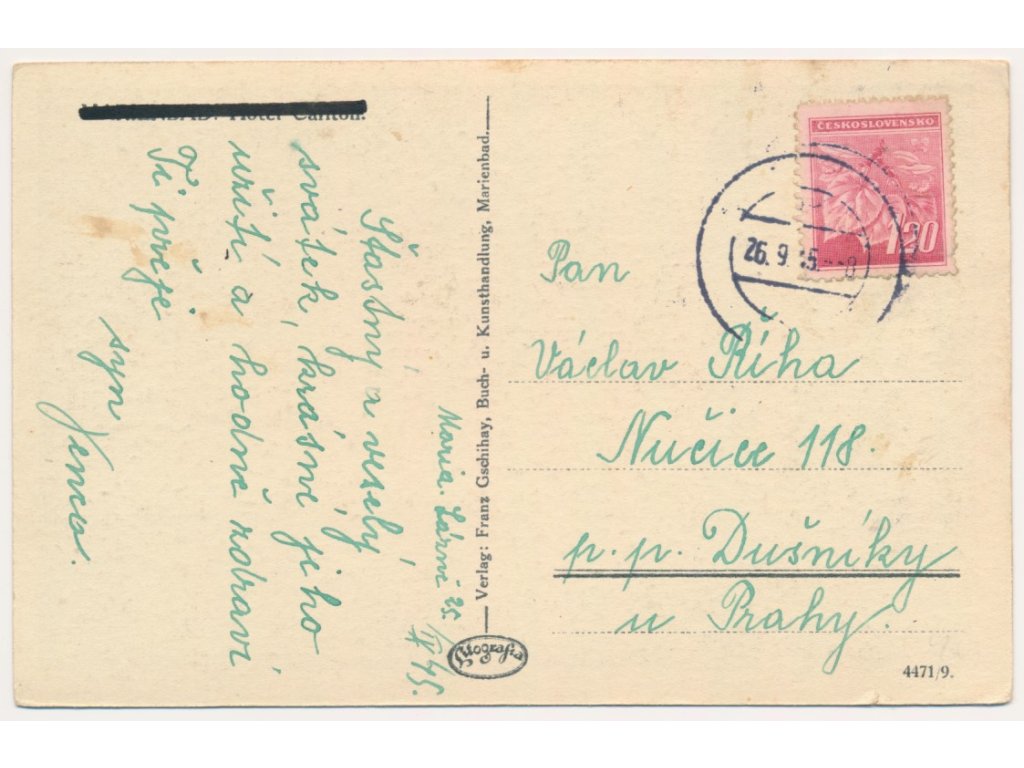 Hotel Carlton.
Maria. Lázně 25/IX 45.
Šťastný a veselý
svátek, krásné jeho
užití a hodně zdraví
Ti přeje
syn
Verlag: Franz Gschihay, Buch- u. Kunsthandlung, Marienbad.
ČESKOSLOVENSKO
1·20
26. 9. 45. 8
Pan
Václav Říha
Nučice 118.
p. p. Dušníky
u Prahy.
4471/9.